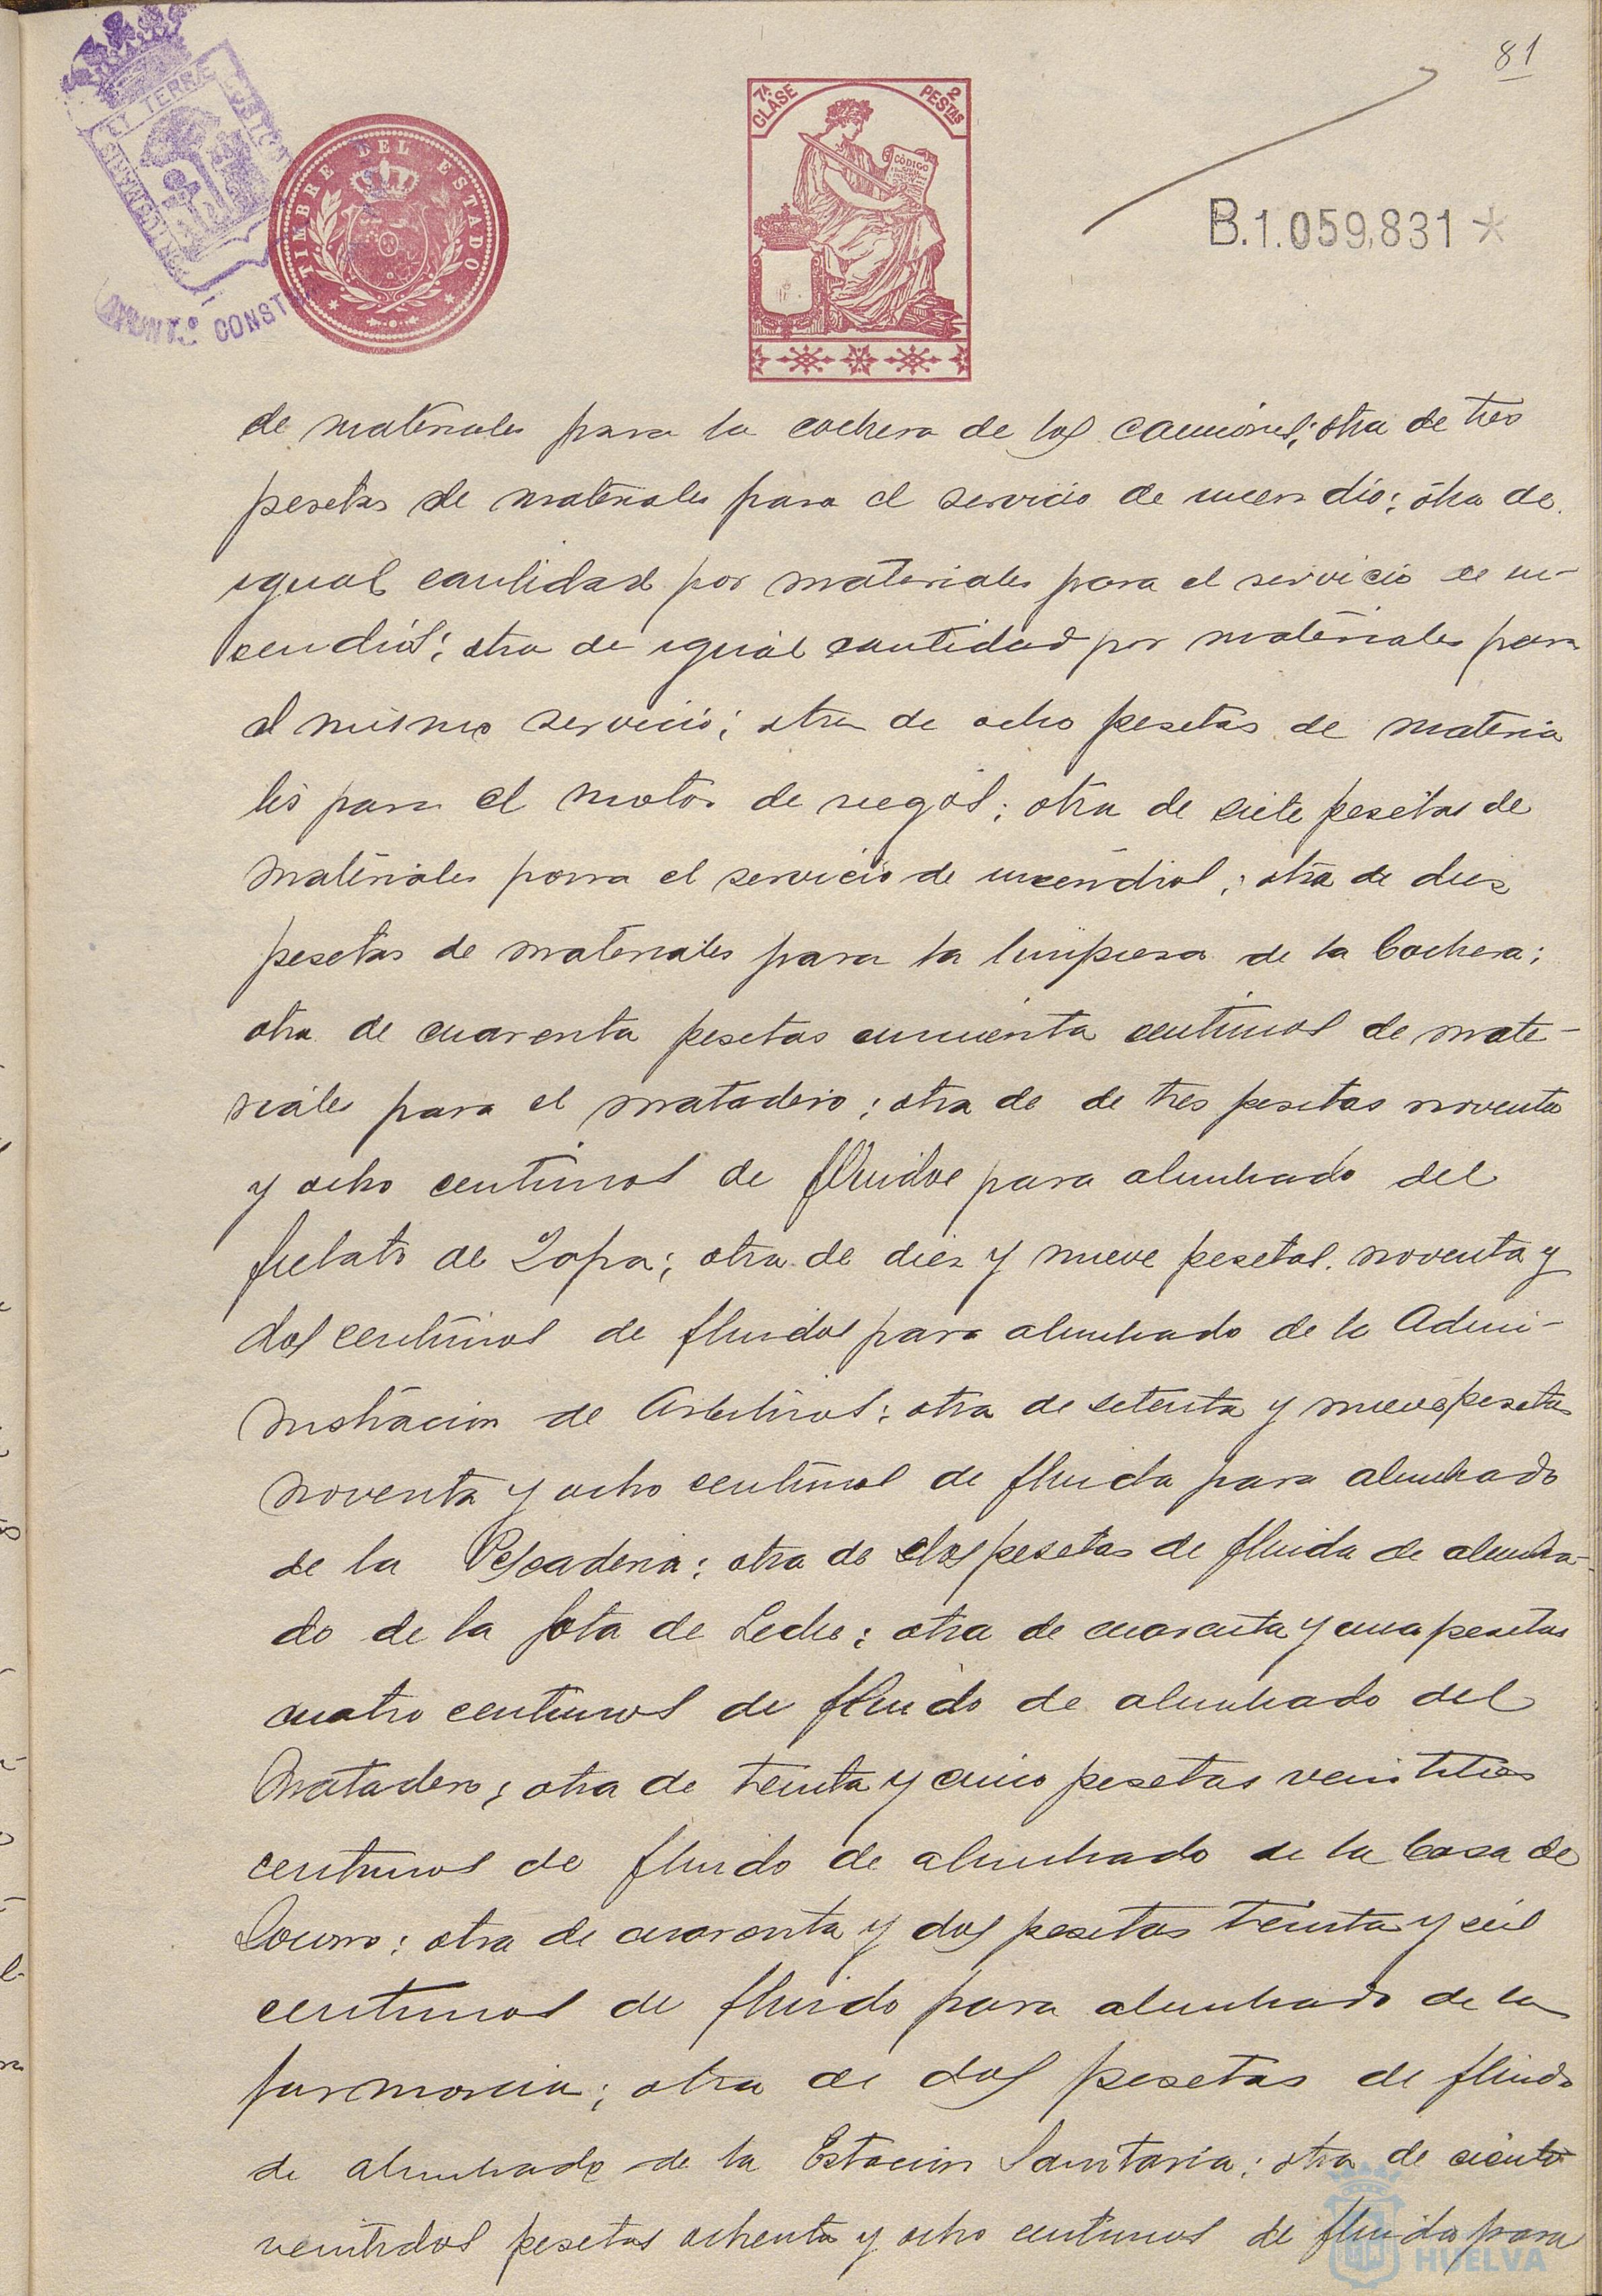 81
7ª CLASE
2 PESTAS
CÓDIGO
TIMBRE DEL ESTADO
B.1.059,831*
CONST
de materiales para la cochera de los camiones; otra de tres
pesetas de materiales para el servicio de incendio; otra de
igual cantidad por materiales para el servicio de in-
cendios; otra de igual cantidad por materiales para
el mismo servicio; otra de ocho pesetas de materia
les para el motor de riegos; otra de siete pesetas de
materiales para el servicio de incendios; otra de diez
pesetas de materiales para la limpieza de la Cochera;
otra de cuarenta pesetas cincuenta centimos de mate-
riales para el matadero; otra de de tres pesetas noventa
y ocho centimos de fluidos para alumbrado del
fielato de Zafra; otra de diez y nueve pesetas noventa y
dos centimos de fluidos para alumbrado de la Admi-
nistracion de Arbitrios; otra de setenta y nueve pesetas
noventa y ocho centimos de fluida para alumbrado
de la Pescaderia; otra de dos pesetas de fluida de alumbra-
do de la Gota de Leche; otra de cuarenta y una pesetas
cuatro centimos de fluido de alumbrado del
Matadero; otra de treinta y cinco pesetas veintitres
centimos de fluido de alumbrado de la Casa de
Socorro; otra de cuarenta y dos pesetas treinta y seis
centimos de fluido para alumbrado de la
farmacia; otra de dos pesetas de fluido
de alumbrado de la Estacion Sanitaria; otra de ciento
veintidos pesetas ochenta y ocho centimos de fluido para
HUELVA